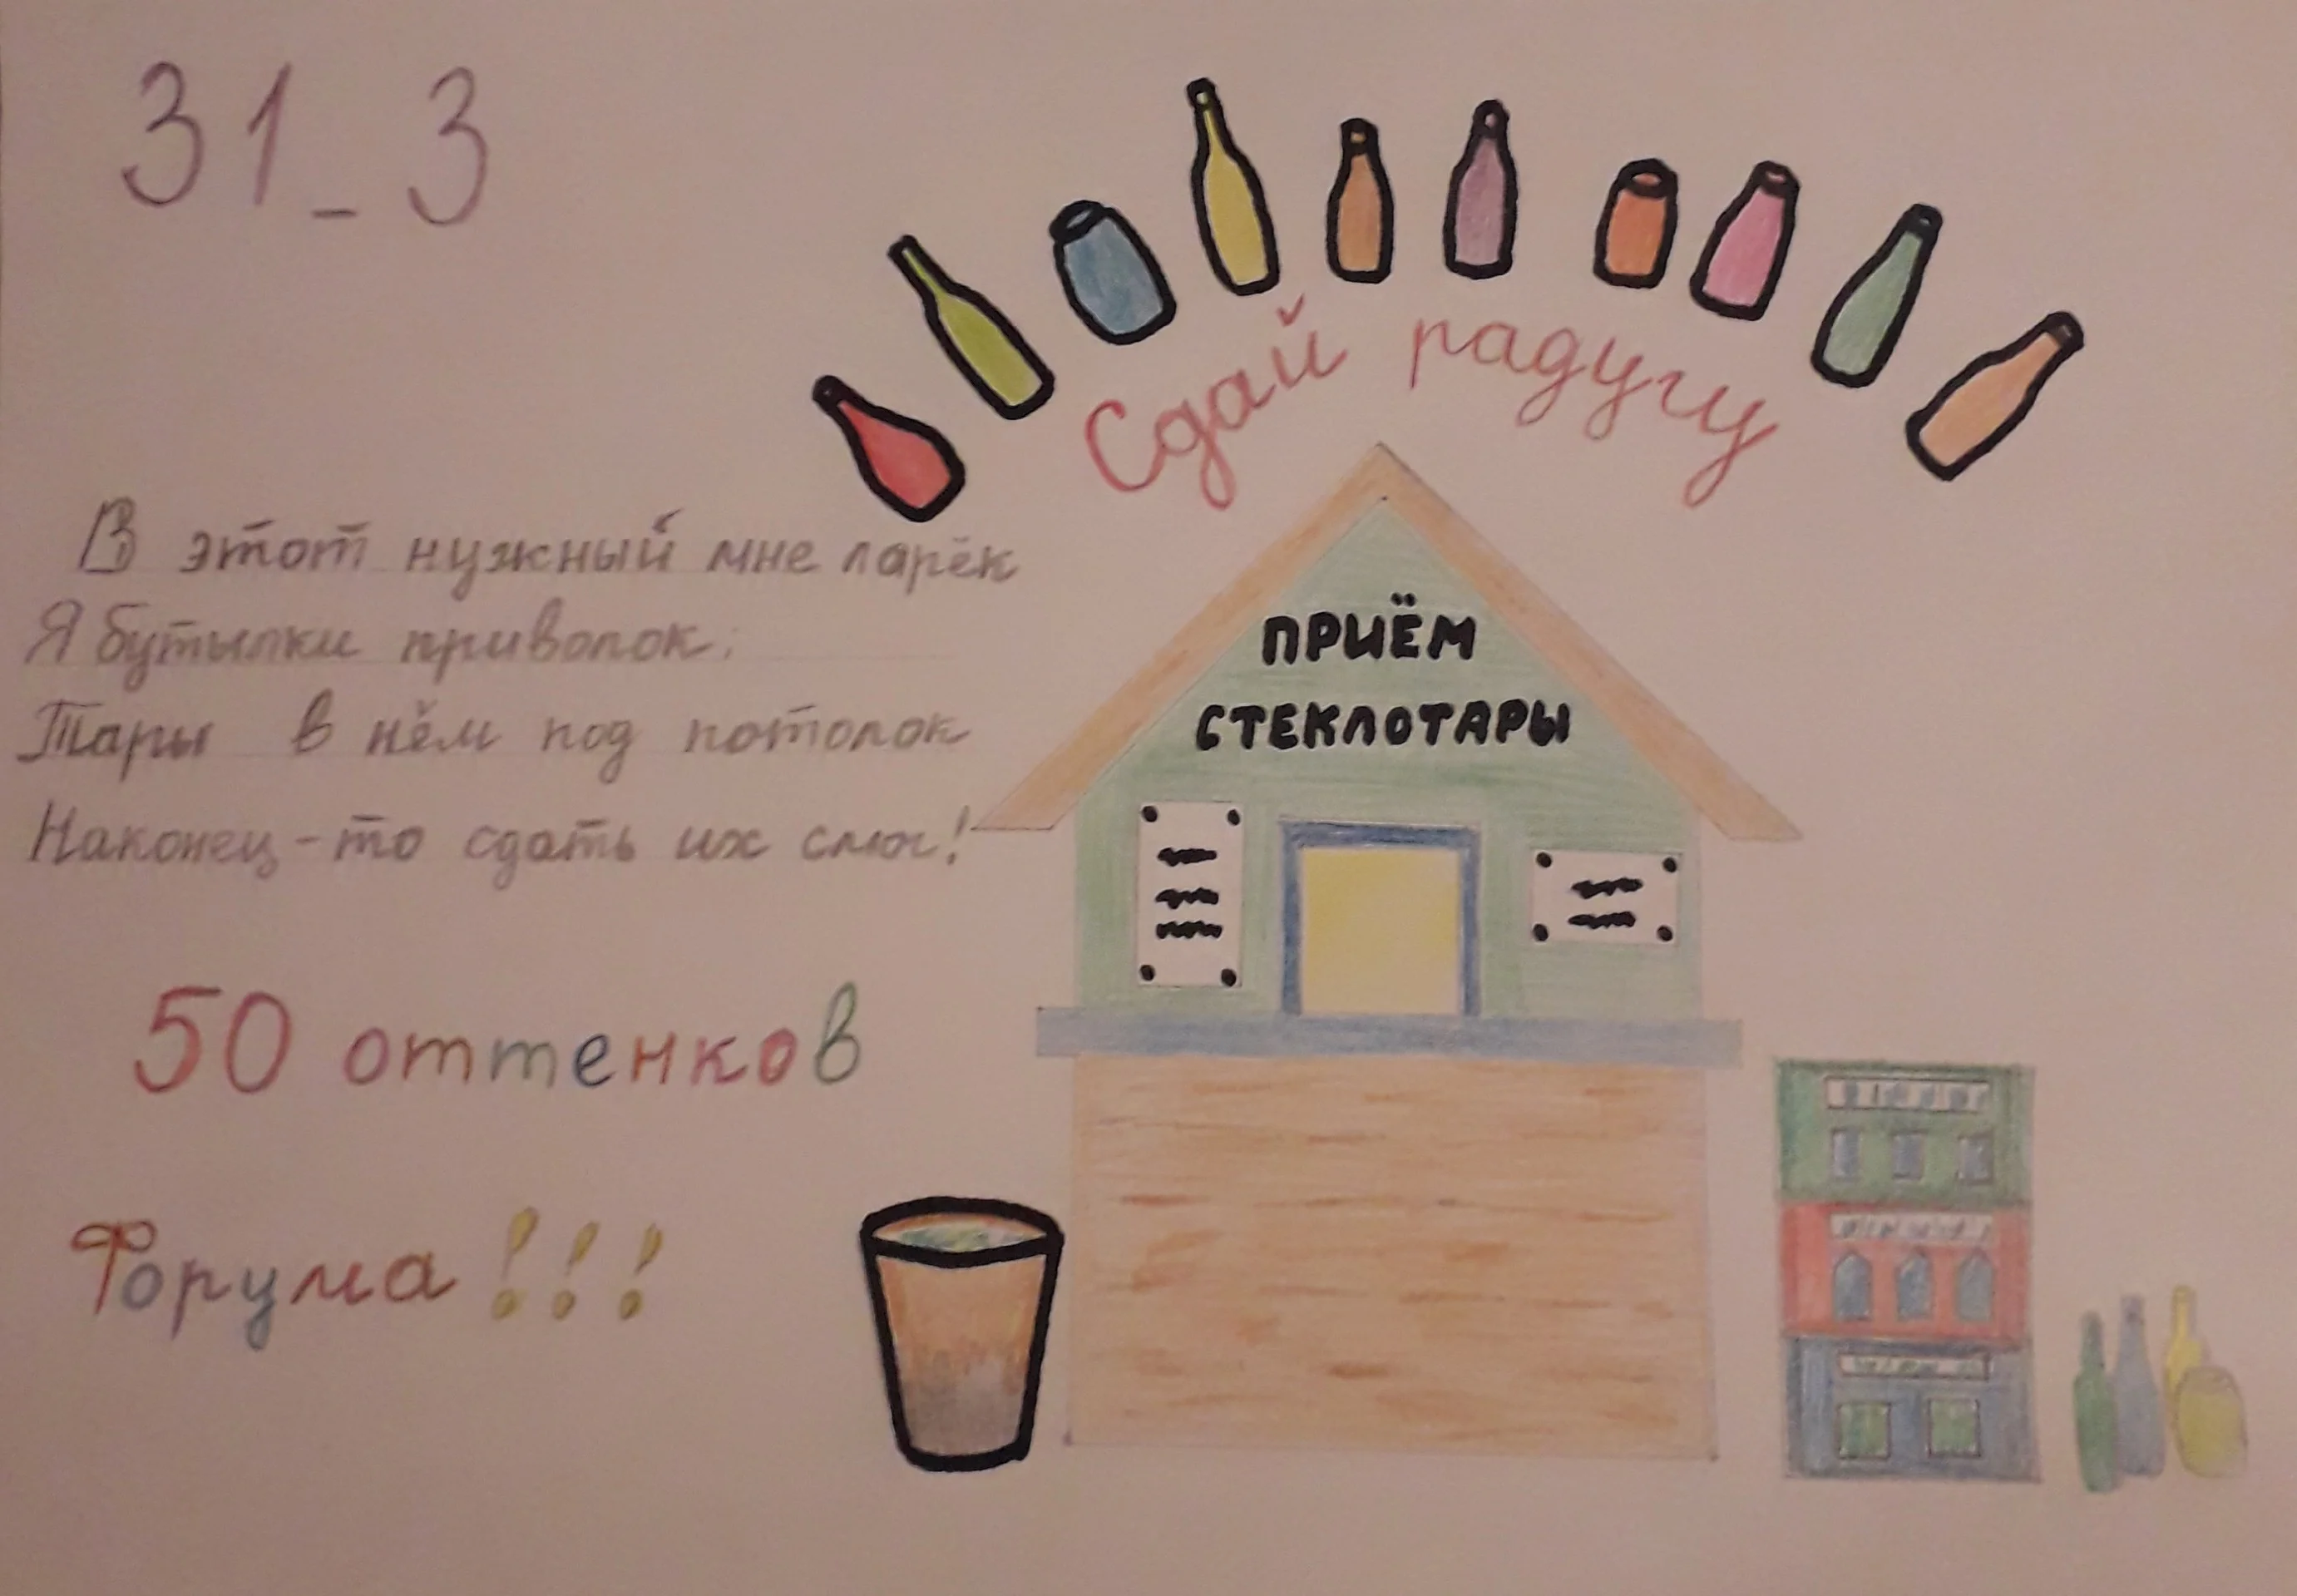 31_3
Сдай радугу
В этот нужный мне ларёк
Я бутылки приволок:
Тары в нём под потолок
Наконец-то сдать их смог!
ПРИЁМ
СТЕКЛОТАРЫ
50 оттенков
Форума!!!